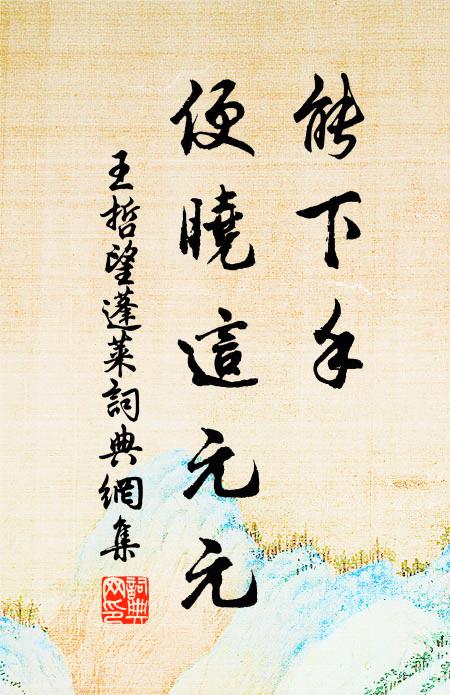 能下手
便曉這元元
王哲望蓬萊詞典網集